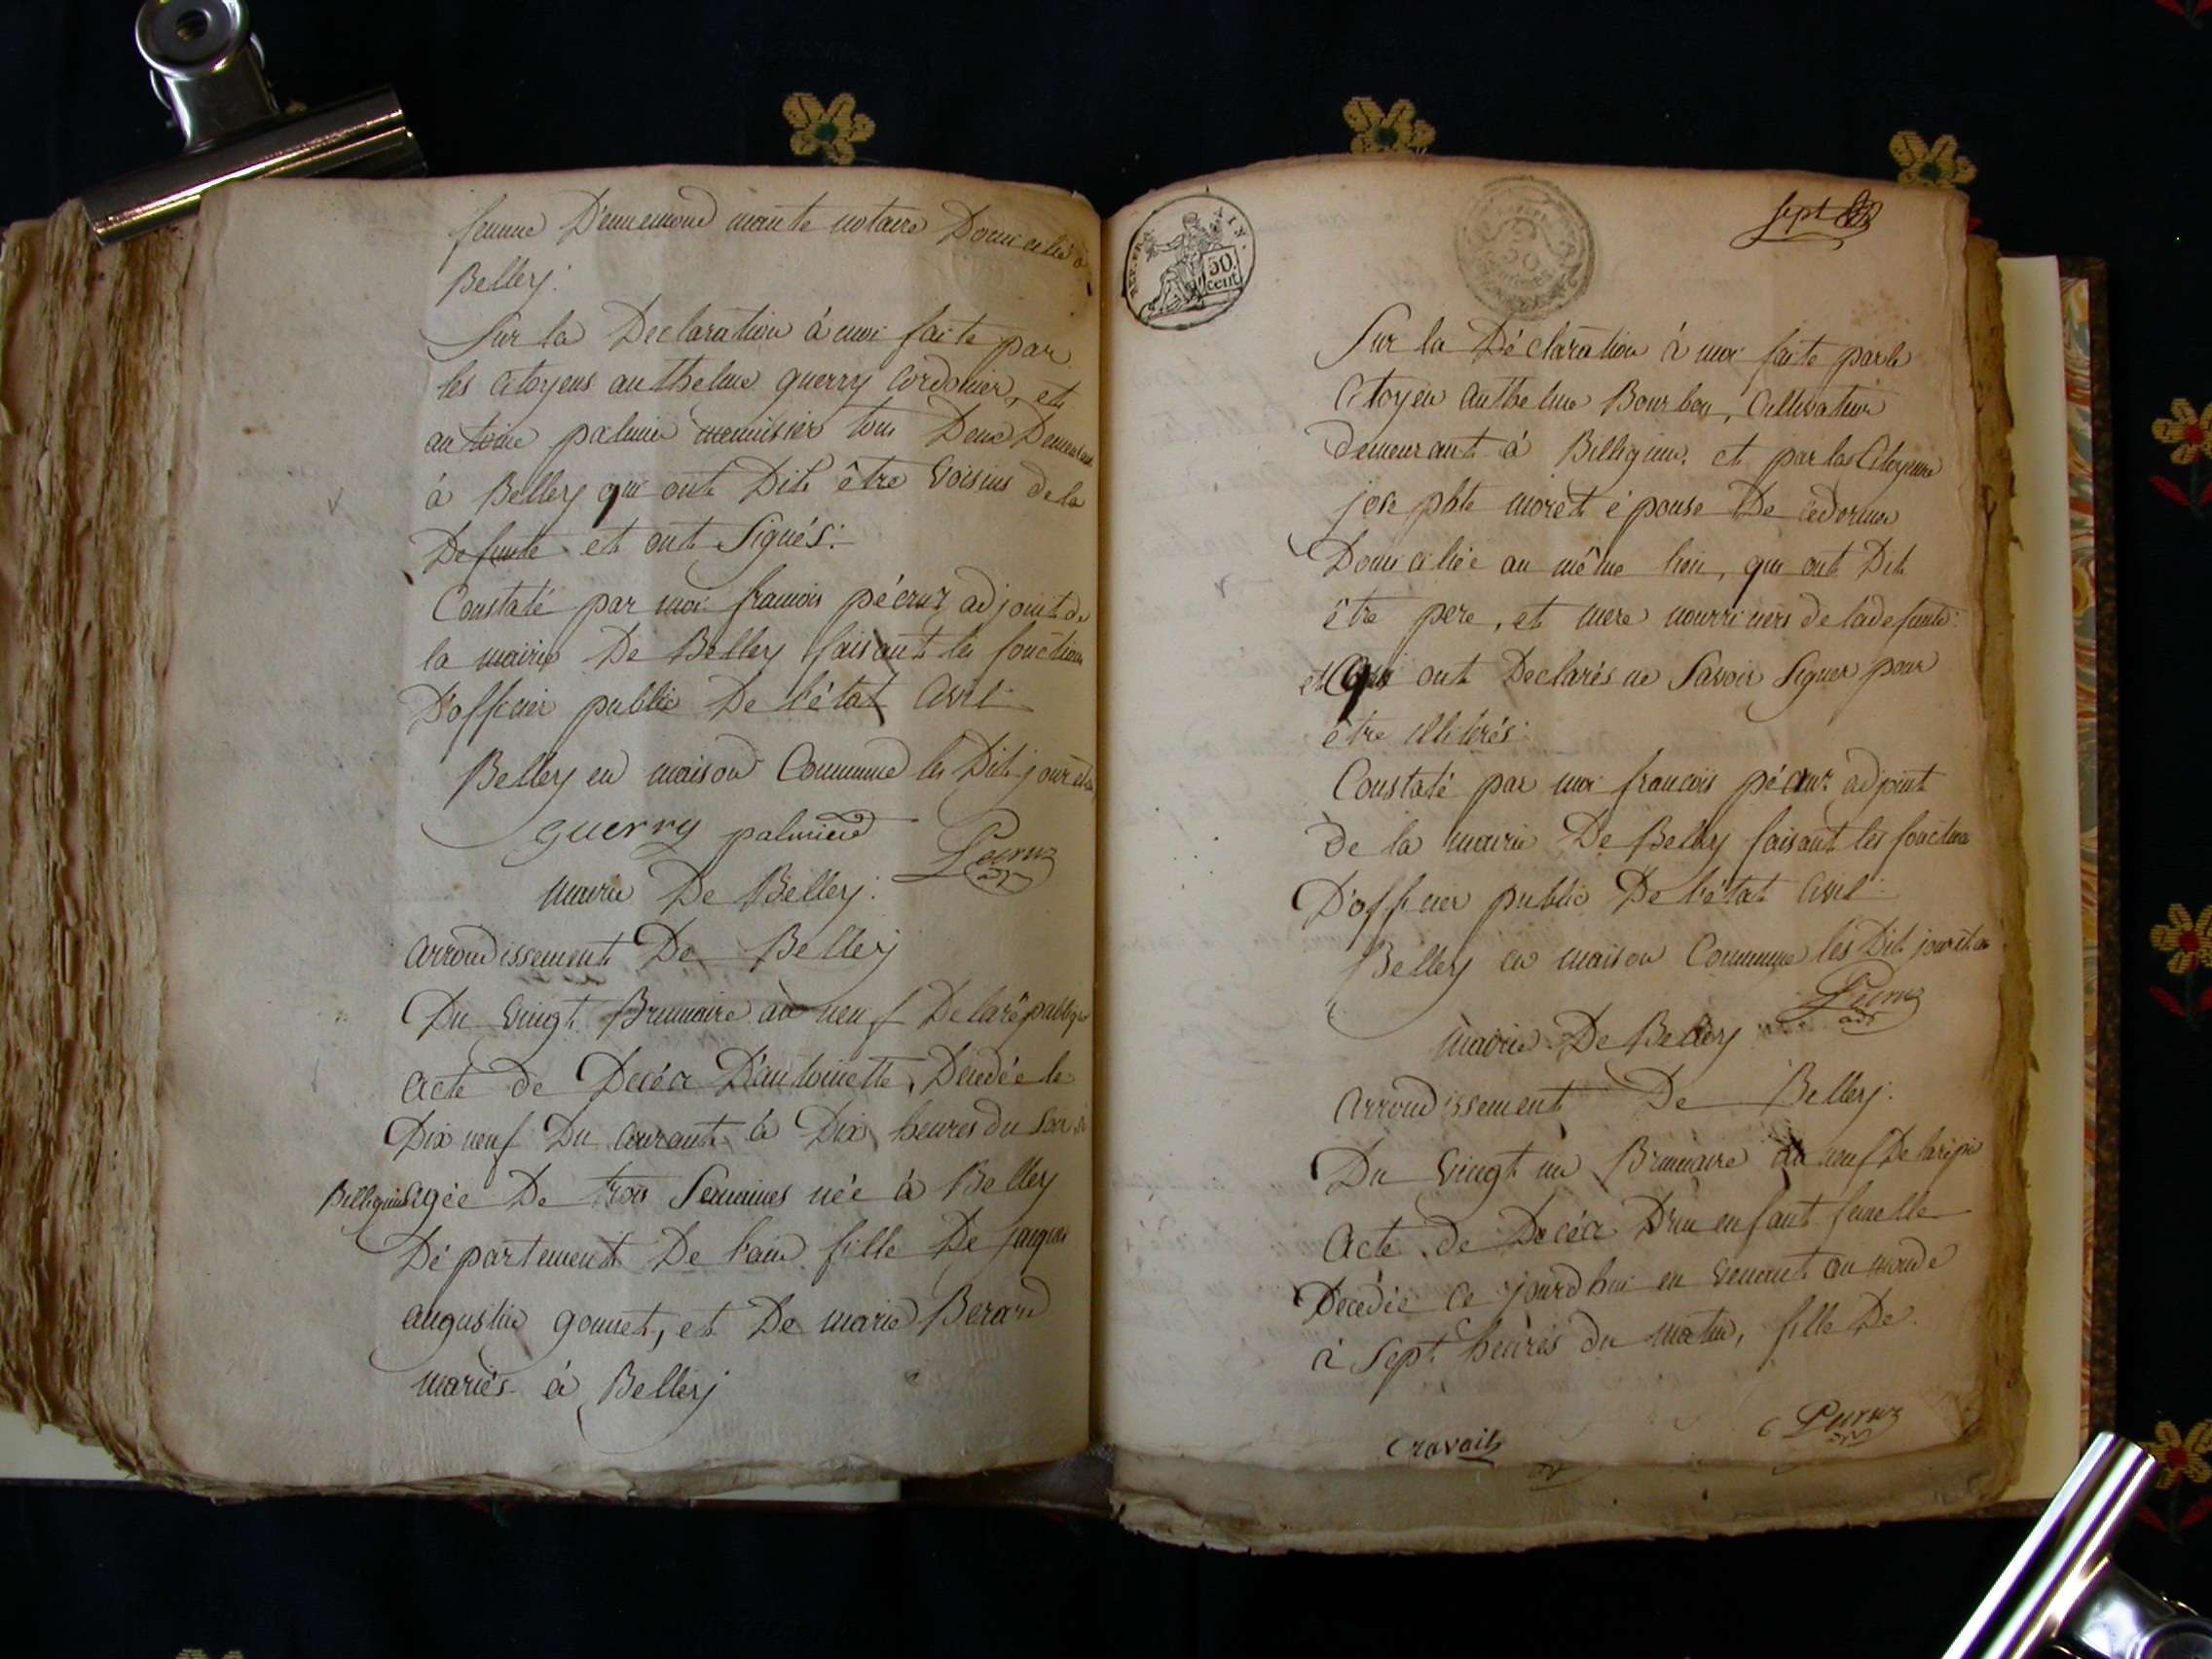 femme D'ennemond mante notaire Domiciliée à
Belley.
Sur la Declaration à moi faite par
les Citoyens anthelme guerry Cordonier, et
antoine palmier menuisier tous Deux Demeurant
à Belley qui ont Dit être Voisins de la
Defunte et ont Signés.
Constaté par moi francois pécruz adjoint de
la mairie De Belley faisant les fonctions
D'officier public De l'état Civil
Belley en maison Commune les Dits jour et an
guerry palmier Pecruz
adj
mairie De Belley.
arrondissement De Belley
Du Vingt Brumaire an neuf De la république
acte de Decéa D'antoinette, Décedée le
Dix neuf Du Courant à Dix heures du Soir
Billignin agée De trois Semaines née à Belley
Département De l'ain fille De jaques
augustin gonnet, et De marie Berard
mariés à Belley
REP. FRA. XIN.
50.
cent.
50
sept
Sur la Déclaration à moi faite par le
Citoyen anthelme Bourbon, Cultivateur
demeurant à Billignin. et par la Citoyenne
josephte moret épouse De cedernier
Domiciliée au même lieu, qui ont Dit
être pere, et mere nourriciers de la defunte.
et qui ont Declarés ne Savoir Signer pour
être illitérés.
Constaté par moi francois pécruz adjoint
de la mairie De Belley faisant les fonctions
D'officier public De l'état Civil
Belley en maison Commune les Dit jour et an
Pecruz
adj
mairie De Belley
arrondissement De Belley.
Du Vingt un Brumaire an neuf De la rép
acte de Decéa D'un enfant femelle
Decedée ce jourdhui en Venant au monde
à Sept heures du matin, fille De
Cravaits
Pecruz
adj